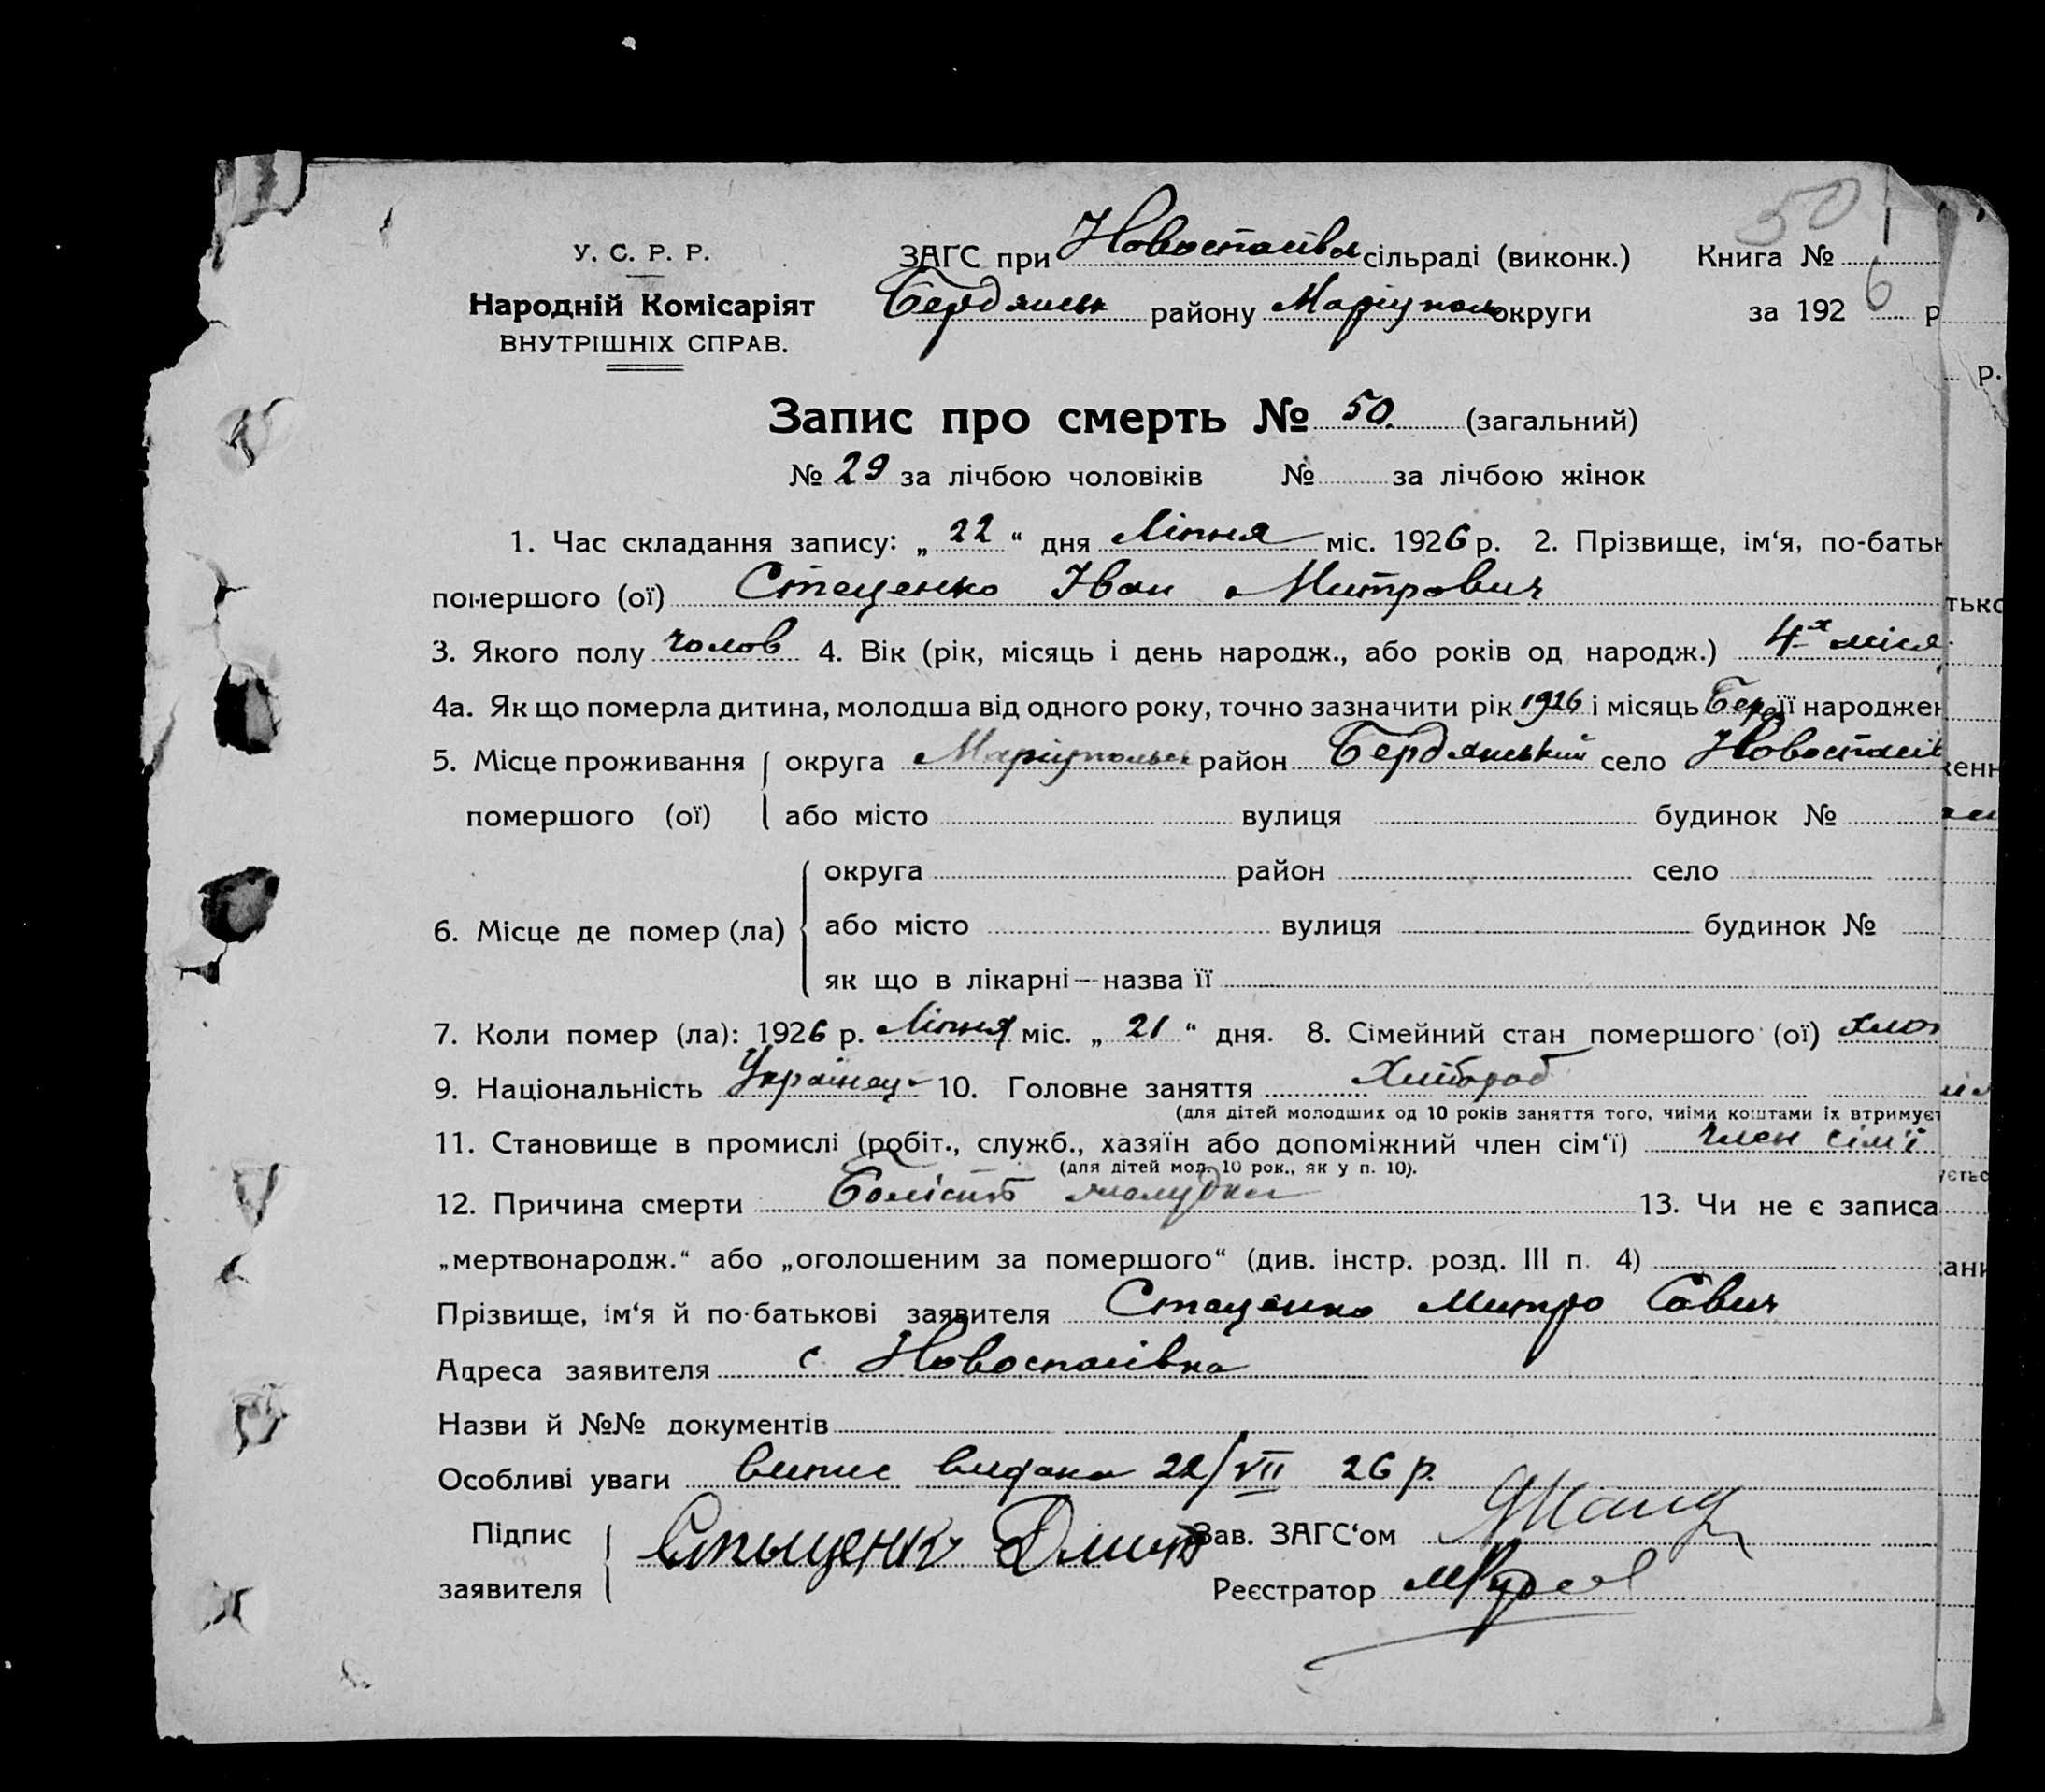 50
У. С. Р. Р.
Народній Комісаріят
ВНУТРІШНІХ СПРАВ.
ЗАГС при Новоспасівск сільраді (виконк.) Книга №
Бердянськ району Маріупольс округи за 1926 р
р.
Запис про смерть № 50. (загальний)
№ 29 за лічбою чоловіків № за лічбою жінок
1. Час складання запису: „ 22 “ дня Ліпня міс. 1926 р. 2. Прізвище, ім‘я, по-батьк
помершого (ої) Стаценко Іван Митрович
тько
3. Якого полу чолов 4. Вік (рік, місяць і день народж., або років од народж.) 4х міся
4а. Як що померла дитина, молодша від одного року, точно зазначити рік 1926 і місяць Бер її народжен
5. Місце проживання округа Маріупольск район Бердянський село Новоспасів
женн
помершого (ої) або місто вулиця будинок №
округа район село
6. Місце де помер (ла) або місто вулиця будинок №
як що в лікарні—назва її
7. Коли помер (ла): 1926 р. Ліпня міс. „ 21 “ дня. 8. Сімейний стан помершого (ої) хлоп
9. Національність Українец 10. Головне заняття Хлібороб
(для дітей молодших од 10 років заняття того, чиїми коштами їх втримует
11. Становище в промислі (робіт., служб., хазяїн або допоміжний член сім‘ї) член сім'ї
(для дітей мол. 10 рок., як у п. 10).
ується
12. Причина смерти Болісить жалудка 13. Чи не є записа
„мертвонародж.“ або „оголошеним за помершого“ (див. інстр. розд. III п. 4)
ани
Прізвище, ім‘я й по-батькові заявителя Стаценко Митро Савич
Адреса заявителя с. Новоспасівка
Назви й №№ документів
Особливі уваги випис видана 22/VII 26 р.
Підпис заявителя Стыценко Дмит
Зав. ЗАГС‘ом
Реєстратор